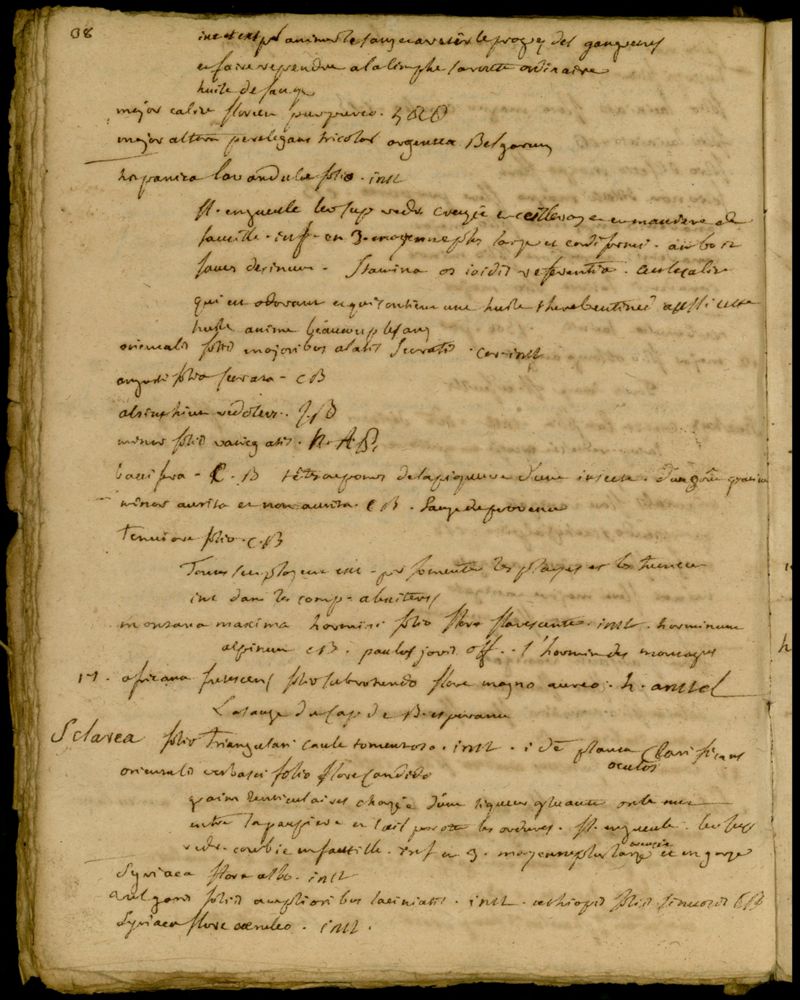 38
animer le sang arrester le progrez des gangrenes
et faire reprendre a la limphe sa route ordinaire
huile de sauge
major calice florum purpureo. CB
major altera perelegans tricolor argentea Belgarum
hispanica lavandulae folio. inst
fl. en gueule lev sup redr. creusée en cuilleron et en maniere de
faucille. inf. en 3. moyenne plus large et cordiforme. au bas
Stamina os ioidis referentia. calice
qui est odorant et qui contient une huile therebentinée aussi cette
huile anime beaucoup le sang
orientalis foliis majoribus alatis serratis. cor. inst
angustifolia serrata - CB
absinthium redolens. J. B
minor foliis variegatis. H. R. P.
baccifera - C. B de la piqueure d'une insecte. d'un goût gracieux
minor aurita et non aurita. CB. Sauge de provence
tenuiore folio. C. B
pour fomenter les playes et les tumeurs
int dans les comp.
montana maxima hormini folio flore flavescente. inst. horminum
alpinum CB. pauli jovis off. l'hormin des montagnes
17. africana frutescens folio subrotundo flore magno aureo. h. amstel
La sauge du Cap de B. esperance
Sclarea folio triangulari caule tomentoso. inst. idē planta clarificans
oculos
orientalis verbasci folio flore candido
graines lenticulaires chargée d'une liqueur gluante on la met
entre la paupiere et l'oeil pour oter les ordures. fl. en gueule. lev sup
redr. courbée en faucille. inf en 3. moyenne plus large creusée et en gorge
Syriaca flore albo. inst
vulgaris foliis amplioribus laciniatis. inst. aethiopis foliis sinuosis CB
Syriaca flore caeruleo. inst.